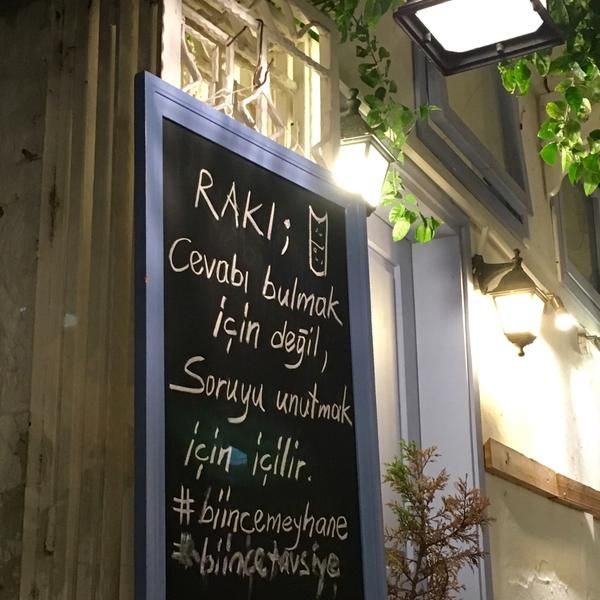 RAKI;
Cevabı bulmak
için değil,
Soruyu unutmak
için içilir.
#biincemeyhane
#biincetavsiye